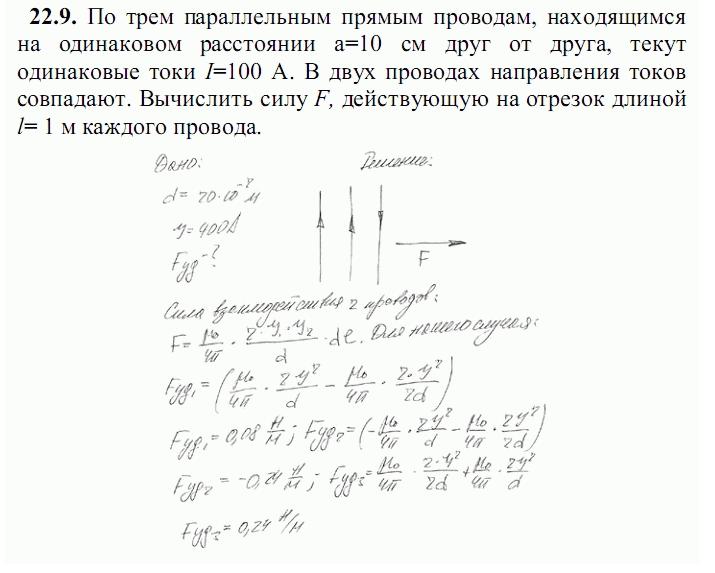 22.9. По трем параллельным прямым проводам, находящимся
на одинаковом расстоянии a=10 см друг от друга, текут
одинаковые токи I=100 А. В двух проводах направления токов
совпадают. Вычислить силу F, действующую на отрезок длиной
l= 1 м каждого провода.
Дано: Решение:
d = 20·10⁻² м
y = 400А
Fуд - ?
F
Сила взаимодействия 2 проводов:
F = μ₀/4π · 2·y₁·y₂/d · dl. Для нашего случая:
Fуд₁ = (μ₀/4π · 2y²/d − μ₀/4π · 2·y²/2d)
Fуд₁ = 0,08 Н/м; Fуд₂ = (−μ₀/4π · 2y²/d − μ₀/4π · 2y²/2d)
Fуд₂ = −0,24 Н/м; Fуд₃ = μ₀/4π · 2·y²/2d + μ₀/4π · 2y²/d
Fуд₃ = 0,24 Н/м